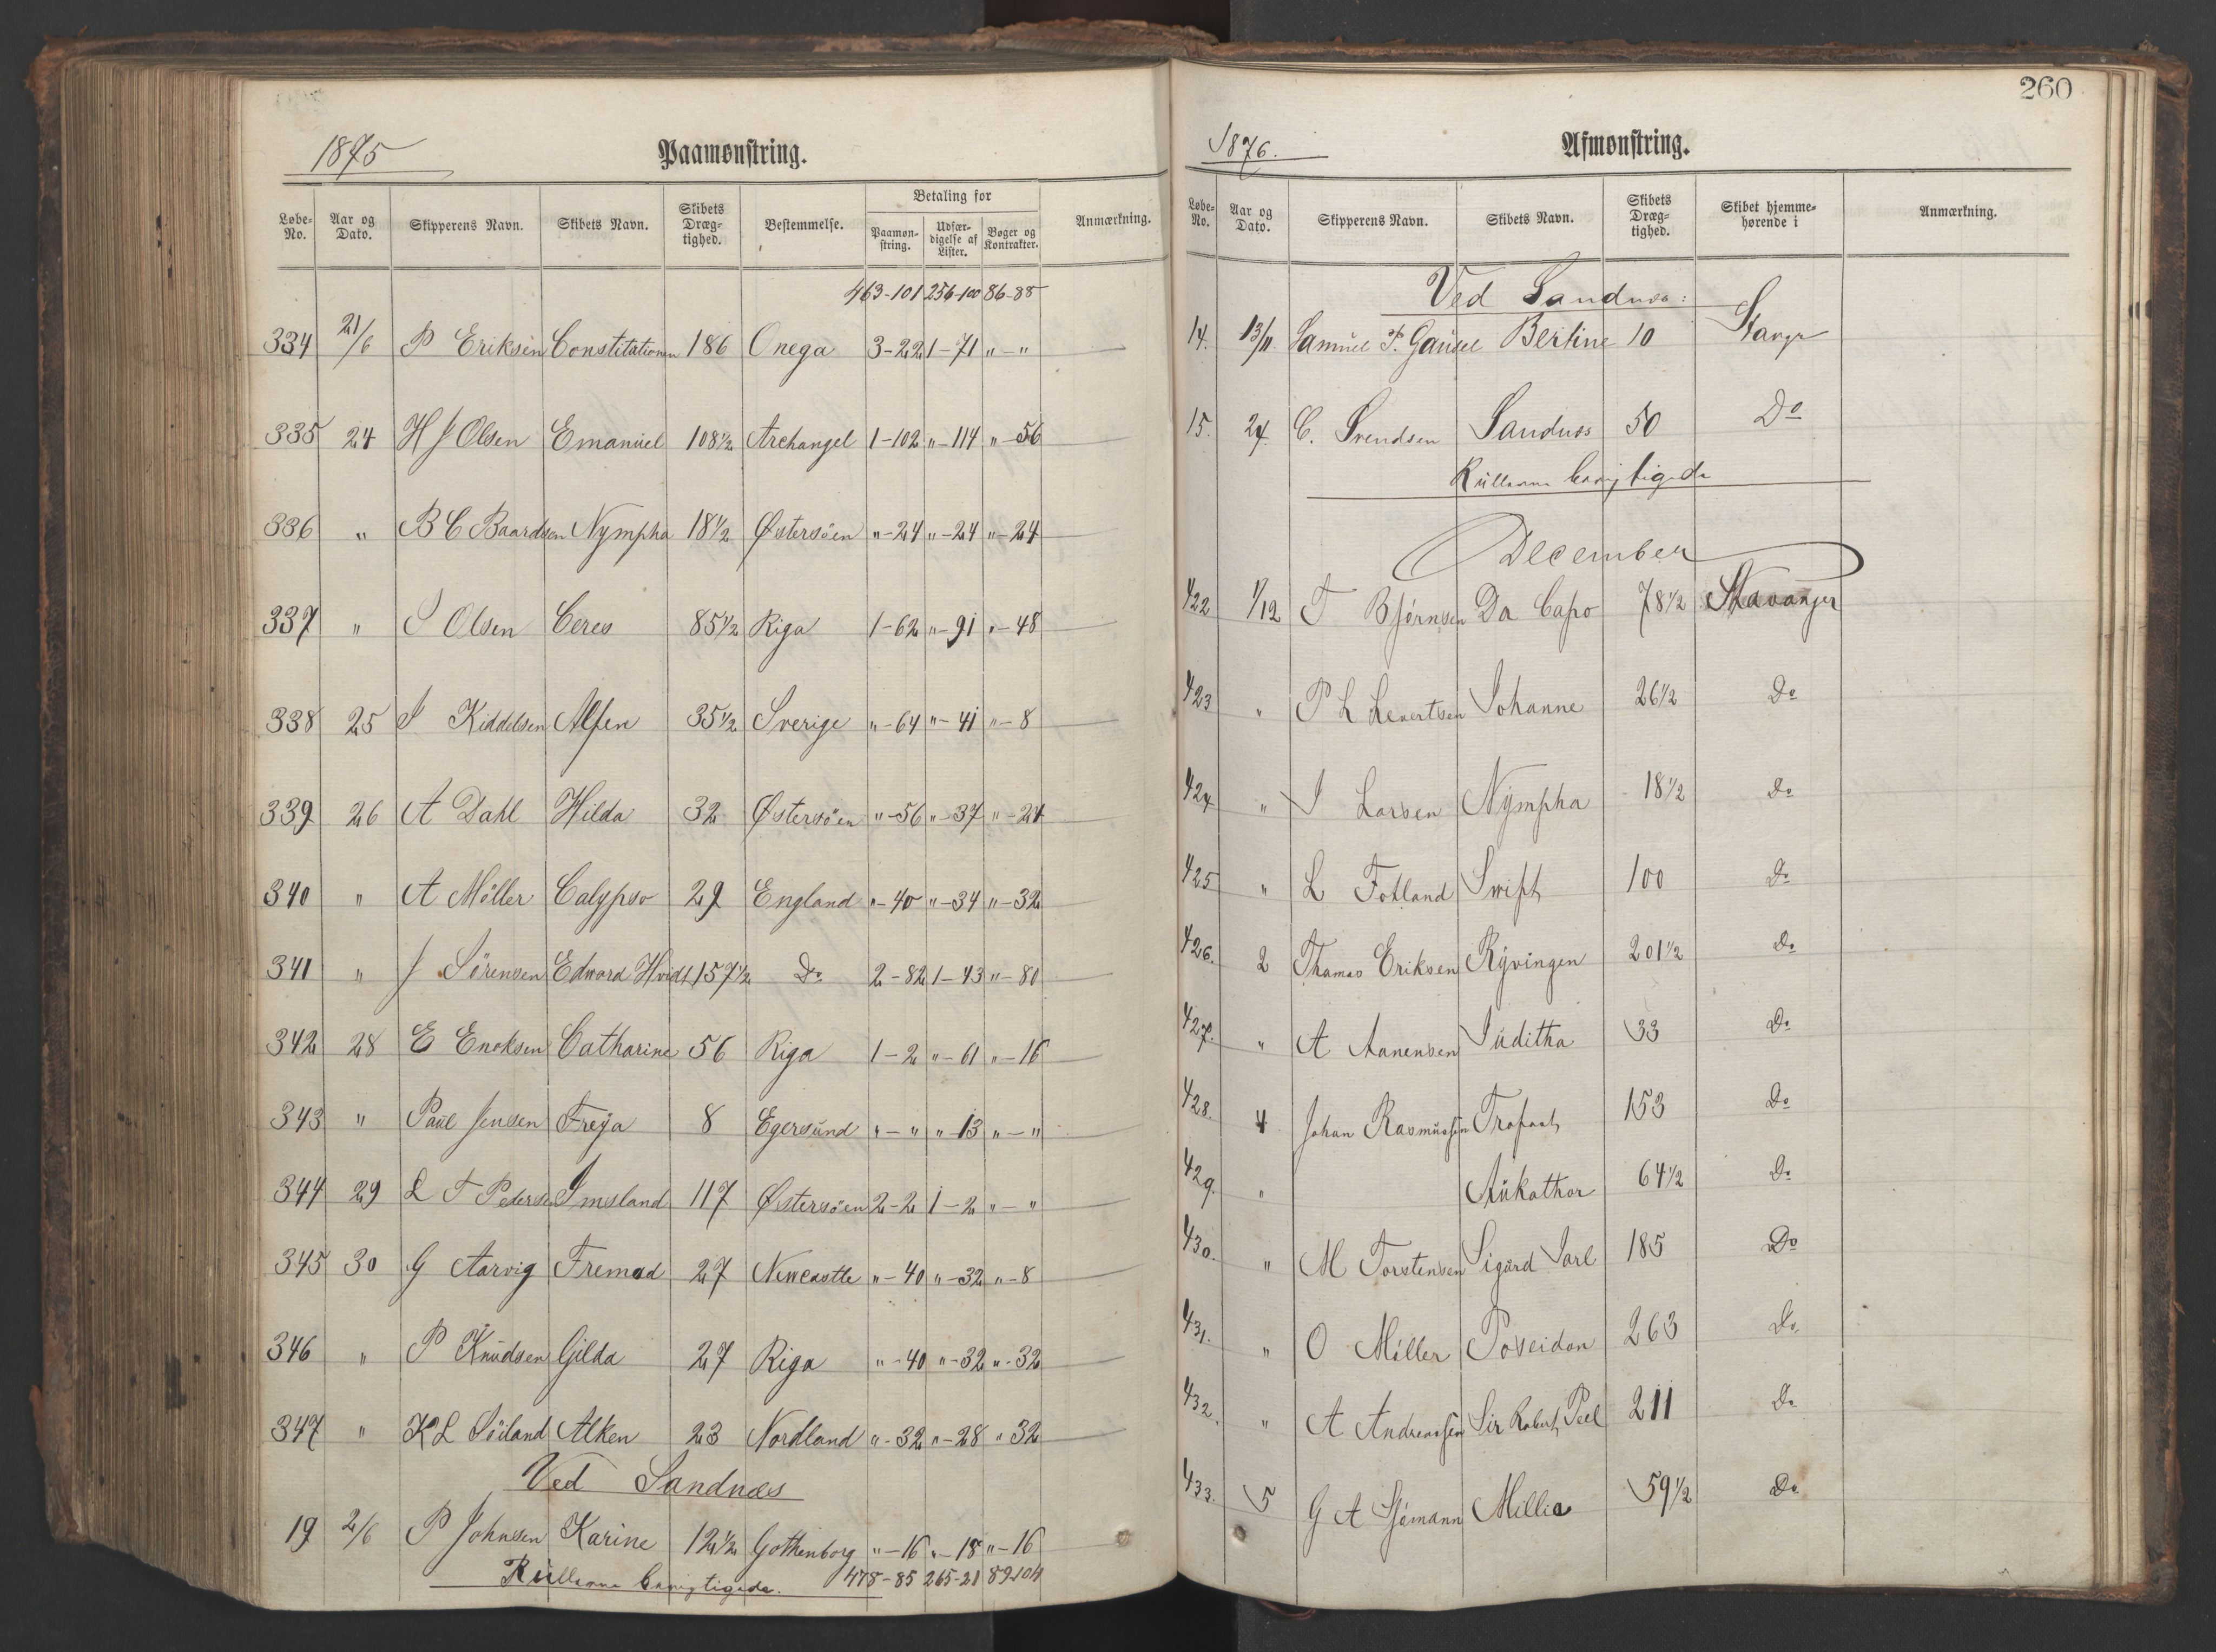 1875
Paamønstring.
Løbe-No. Aar og Dato. Skipperens Navn. Skibets Navn. Skibets Dræg-tighed. Bestemmelse. Betaling for Paamøn-string. Udfær-digelse af Lister. Bøger og Kontrakter. Anmærkning.
463-101 256-100 86-88
334 21/6 P Eriksen Constitutionen 186 Onega 3-22 1-71 "-"
335 24 H J Olsen Emanuel 108½ Archangel 1-102 "-114 "-56
336 " B C Baardsen Nympha 18½ Østersøen "-24 "-24 "-24
337 " S Olsen Ceres 85½ Riga 1-62 "-91 "-48
338 25 J Kiddelsen Alfen 35½ Sverige "-64 "-41 "-8
339 26 A Dahl Hilda 32 Østersøen "-56 "-37 "-24
340 " A Møller Calypso 29 England "-40 "-34 "-32
341 " J Sørensen Edward Hvidt 157½ Do 2-82 1-43 "-80
342 28 E Enoksen Catharine 56 Riga 1-2 "-61 "-16
343 " Paul Jensen Freja 8 Egersund "-" "-13 "-"
344 29 L T Pedersen Imsland 117 Østersøen 2-2 1-2 "-"
345 30 G Aarvig Fremad 27 Newcastle "-40 "-32 "-8
346 " P Knudsen Gilda 27 Riga "-40 "-32 "-32
347 " K L Søiland Alken 23 Nordland "-32 "-28 "32
Ved Sandnæs
19 2/6 P Johnsen Karine 12½ Gothenborg "-16 "-18 "-16
Rullerne 478-85 265-21 89-104
260
1876.
Afmønstring.
Løbe-No. Aar og Dato. Skipperens Navn. Skibets Navn. Skibets Dræg-tighed. Skibet hjemme-hørende i Anmærkning.
Ved Sandnæs:
14. 13/11. Samuel P. Gausel Bertine 10 Stavgr
15. 24. C. Svendsen Sandnæs 50 Do
Rullerne
December
422 1/12 T Bjørnsen Da Capo 78½ Stavanger
423 " P L Levertsen Johanne 26½ Do
424 " J Larsen Nympha 18½ Do
425 " L Fotland Swift 100 Do
426. 2 Thomas Eriksen Ryvingen 201½ Do
427. " A Aanensen Juditha 33 Do
428. 4 Johan Rasmussen Trofast 153 Do
429. " Aukathor 64½ Do
430. " M Torstensen Sigurd Jarl 185 Do
431. " O Miller Poseidon 263 Do
432. " A Andreassen Sir Robert Peel 211 Do
433. 5 G A Sjømann Millie 59½ Do